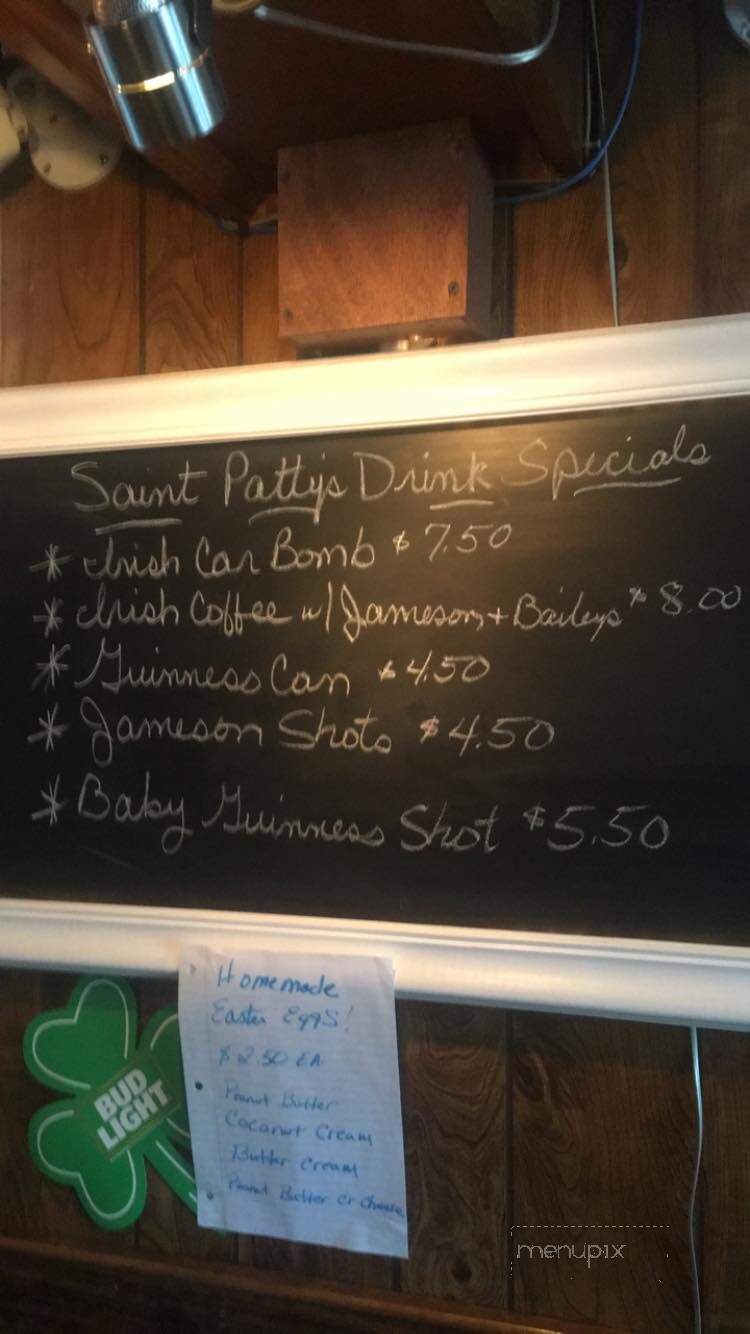 Saint Patty's Drink Specials
* Irish Car Bomb $7.50
* Irish Coffee w/ Jameson + Baileys $8.00
* Guinness Can $4.50
* Jameson Shots $4.50
* Baby Guinness Shot $5.50
Homemade
Easter Eggs!
$2.50 EA
Peanut Butter
Coconut Cream
Butter Cream
Peanut Butter or
BUD
LIGHT
menupix